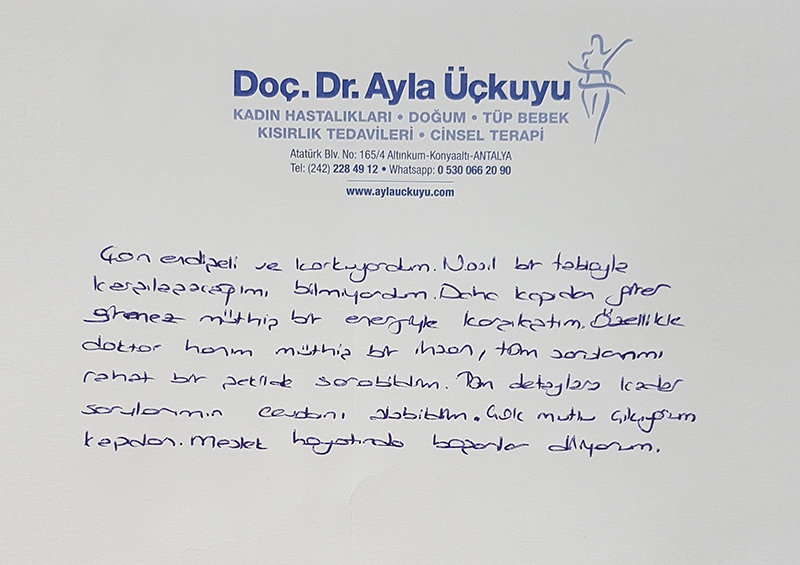 Doç. Dr. Ayla Üçkuyu
KADIN HASTALIKLARI • DOĞUM • TÜP BEBEK
KISIRLIK TEDAVİLERİ • CİNSEL TERAPİ
Atatürk Blv. No: 165/4 Altınkum-Konyaaltı-ANTALYA
Tel: (242) 228 49 12 • Whatsapp: 0 530 066 20 90
www.aylauckuyu.com
Çon endişeli ve korkuyordum. Nasıl bir tabloyla
karşılaşacağımı bilmiyordum. Daha kapıdan girer
girmez müthiş bir enerjiyle karşılaştım. Özellikle
doktor hanım müthiş bir insan, tüm sorularımı
rahat bir şekilde sorabildim. Tüm detaylara kadar
sorularımın cevabını alabildim. Çok mutlu çıkıyorum
kapıdan. Meslek hayatında başarılar diliyorum.